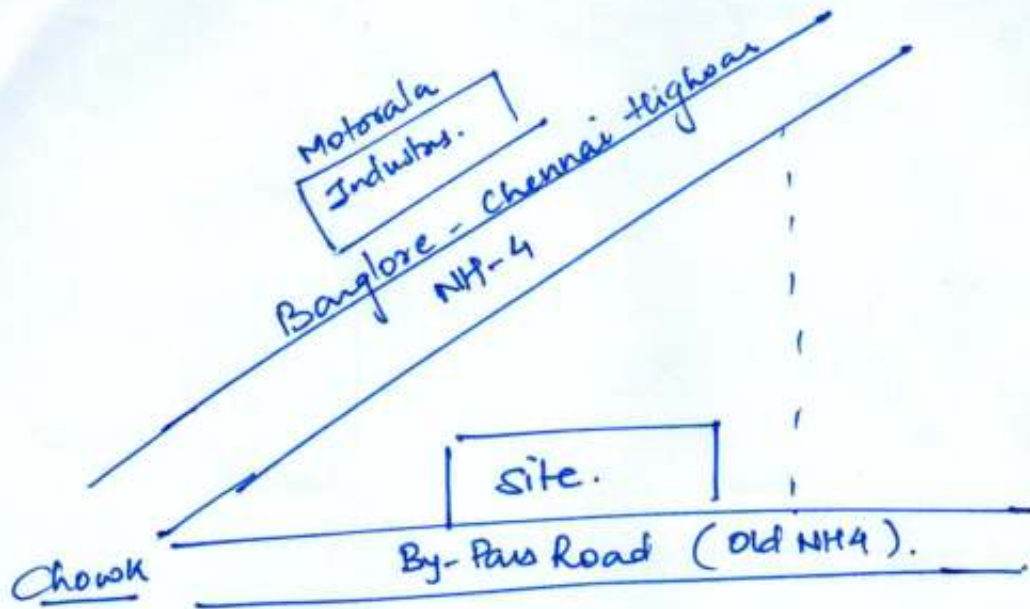 Motorala
Industrs.
Banglore - Chennai Highway
NH-4
Site.
By-Pass Road (Old NH4).
Chowk